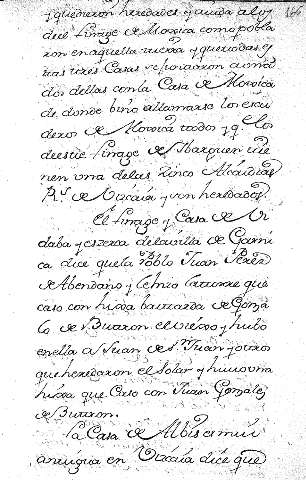 y quedieron heredades y ayuda a los
del linage de Moxica como pobla
ron en aquella tierra y que todas y
tres Casas
dos dellas con la Casa de Moxica
de donde bino allamarse los escu
deros de Moxica todos y q. los
de este linage de Ibarguen tie
nen una de las cinco Alcaldias
R.s de Vizcaia y son heredados.
El linage y Casa de Vi
daba y eszera de la villa de Garni
ca dice que la Poblo Juan Perez
de Abendaño y le hizo la torre que
caso con hixxa bastarda de Gonza
lo de Butron el viexo y hubo
en ella a Juan de S.n Juan y otros
que heredaron el solar y hubo una
hixxa que Caso con Juan Gonzalez
de Butron.
La Casa de Albis es mui
antigua en Vizcaia dice que